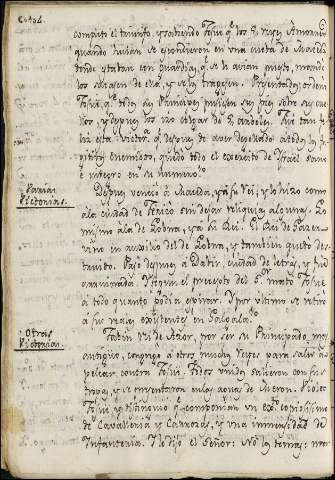 completo el triunfo. y sabiendo Josuè q.e los 5. reyes Amorreos
quando huian se escondieron en una cueba de Maceda
donde estaban con guardias, q.e se le avian puesto, mandò
los sacasen de ella, y se los trajesen. Presentados, ordenò
Josuè, q.e todos sus Principes pusiesen sus pies sobre sus cue-
llos, y despues los hizo colgar de 5. arboles. Fue tan
esta victor.a q.e despues de aver
enemigos, quedò todo el exercito de Israel sano
è integro en su numero.
Varias
Victorias.
Despues venciò à Maceda, y à su Rei; y lo hizo como
à la ciudad de Jericò sin dejar reliquia alguna. Lo
mismo à la de Lobna, y à su Rei. El Rei de Gazer
vino en auxilio del de Lobna, y tambien quedò des-
truido. Pasò despues à Dabir, ciudad de letras, y fue
arruinada. Segun el precepto del S.or matò Josuè
à todo quanto podia espirar. Y por ultimo se retirò
à sus reales existentes en Galgala.
Otras
Victorias.
Jabin rei de Asor, por ser su Principado mas
antiguo, congregò à otros muchos reyes para salir à
pelear contra Josuè. Todos unidos salieron con sus
tropas, y se juntaron en las aguas de Meron.
Josuè y componian un ex.to copiosissimo
de Cavalleria y Carrozas, y una inmensidad de
Infanteria. Le dijo el Señor: No los temas; ma-